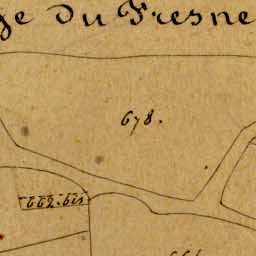 ge du Fresne
678.
662.bis